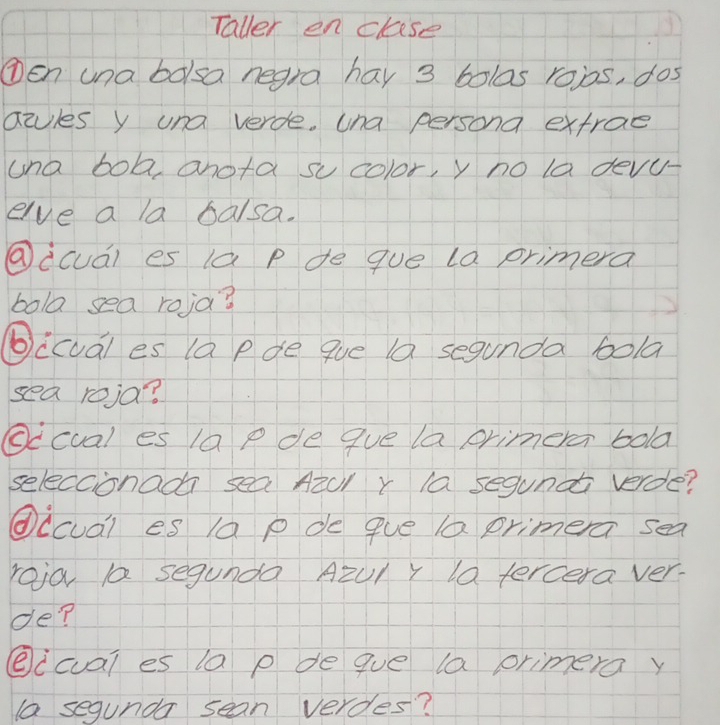 Taller en clase
① En una bolsa negra hay 3 bolas rojas, dos
azules y una verde. Una persona extrae
una bola, anota su color, y no la devu-
elve a la balsa.
ⓐ ¿cuál es la P de que la primera
bola sea roja?
ⓑ ¿cuál es la p de que la segunda bola
sea roja?
ⓒ ¿cual es la p de que la primera bola
seleccionada sea Azul y la segunda verde?
ⓓ ¿cuál es la p de que la primera sea
roja, la segunda Azul y la tercera ver-
de?
ⓔ ¿cuál es la p de que la primera y
la segunda sean verdes?